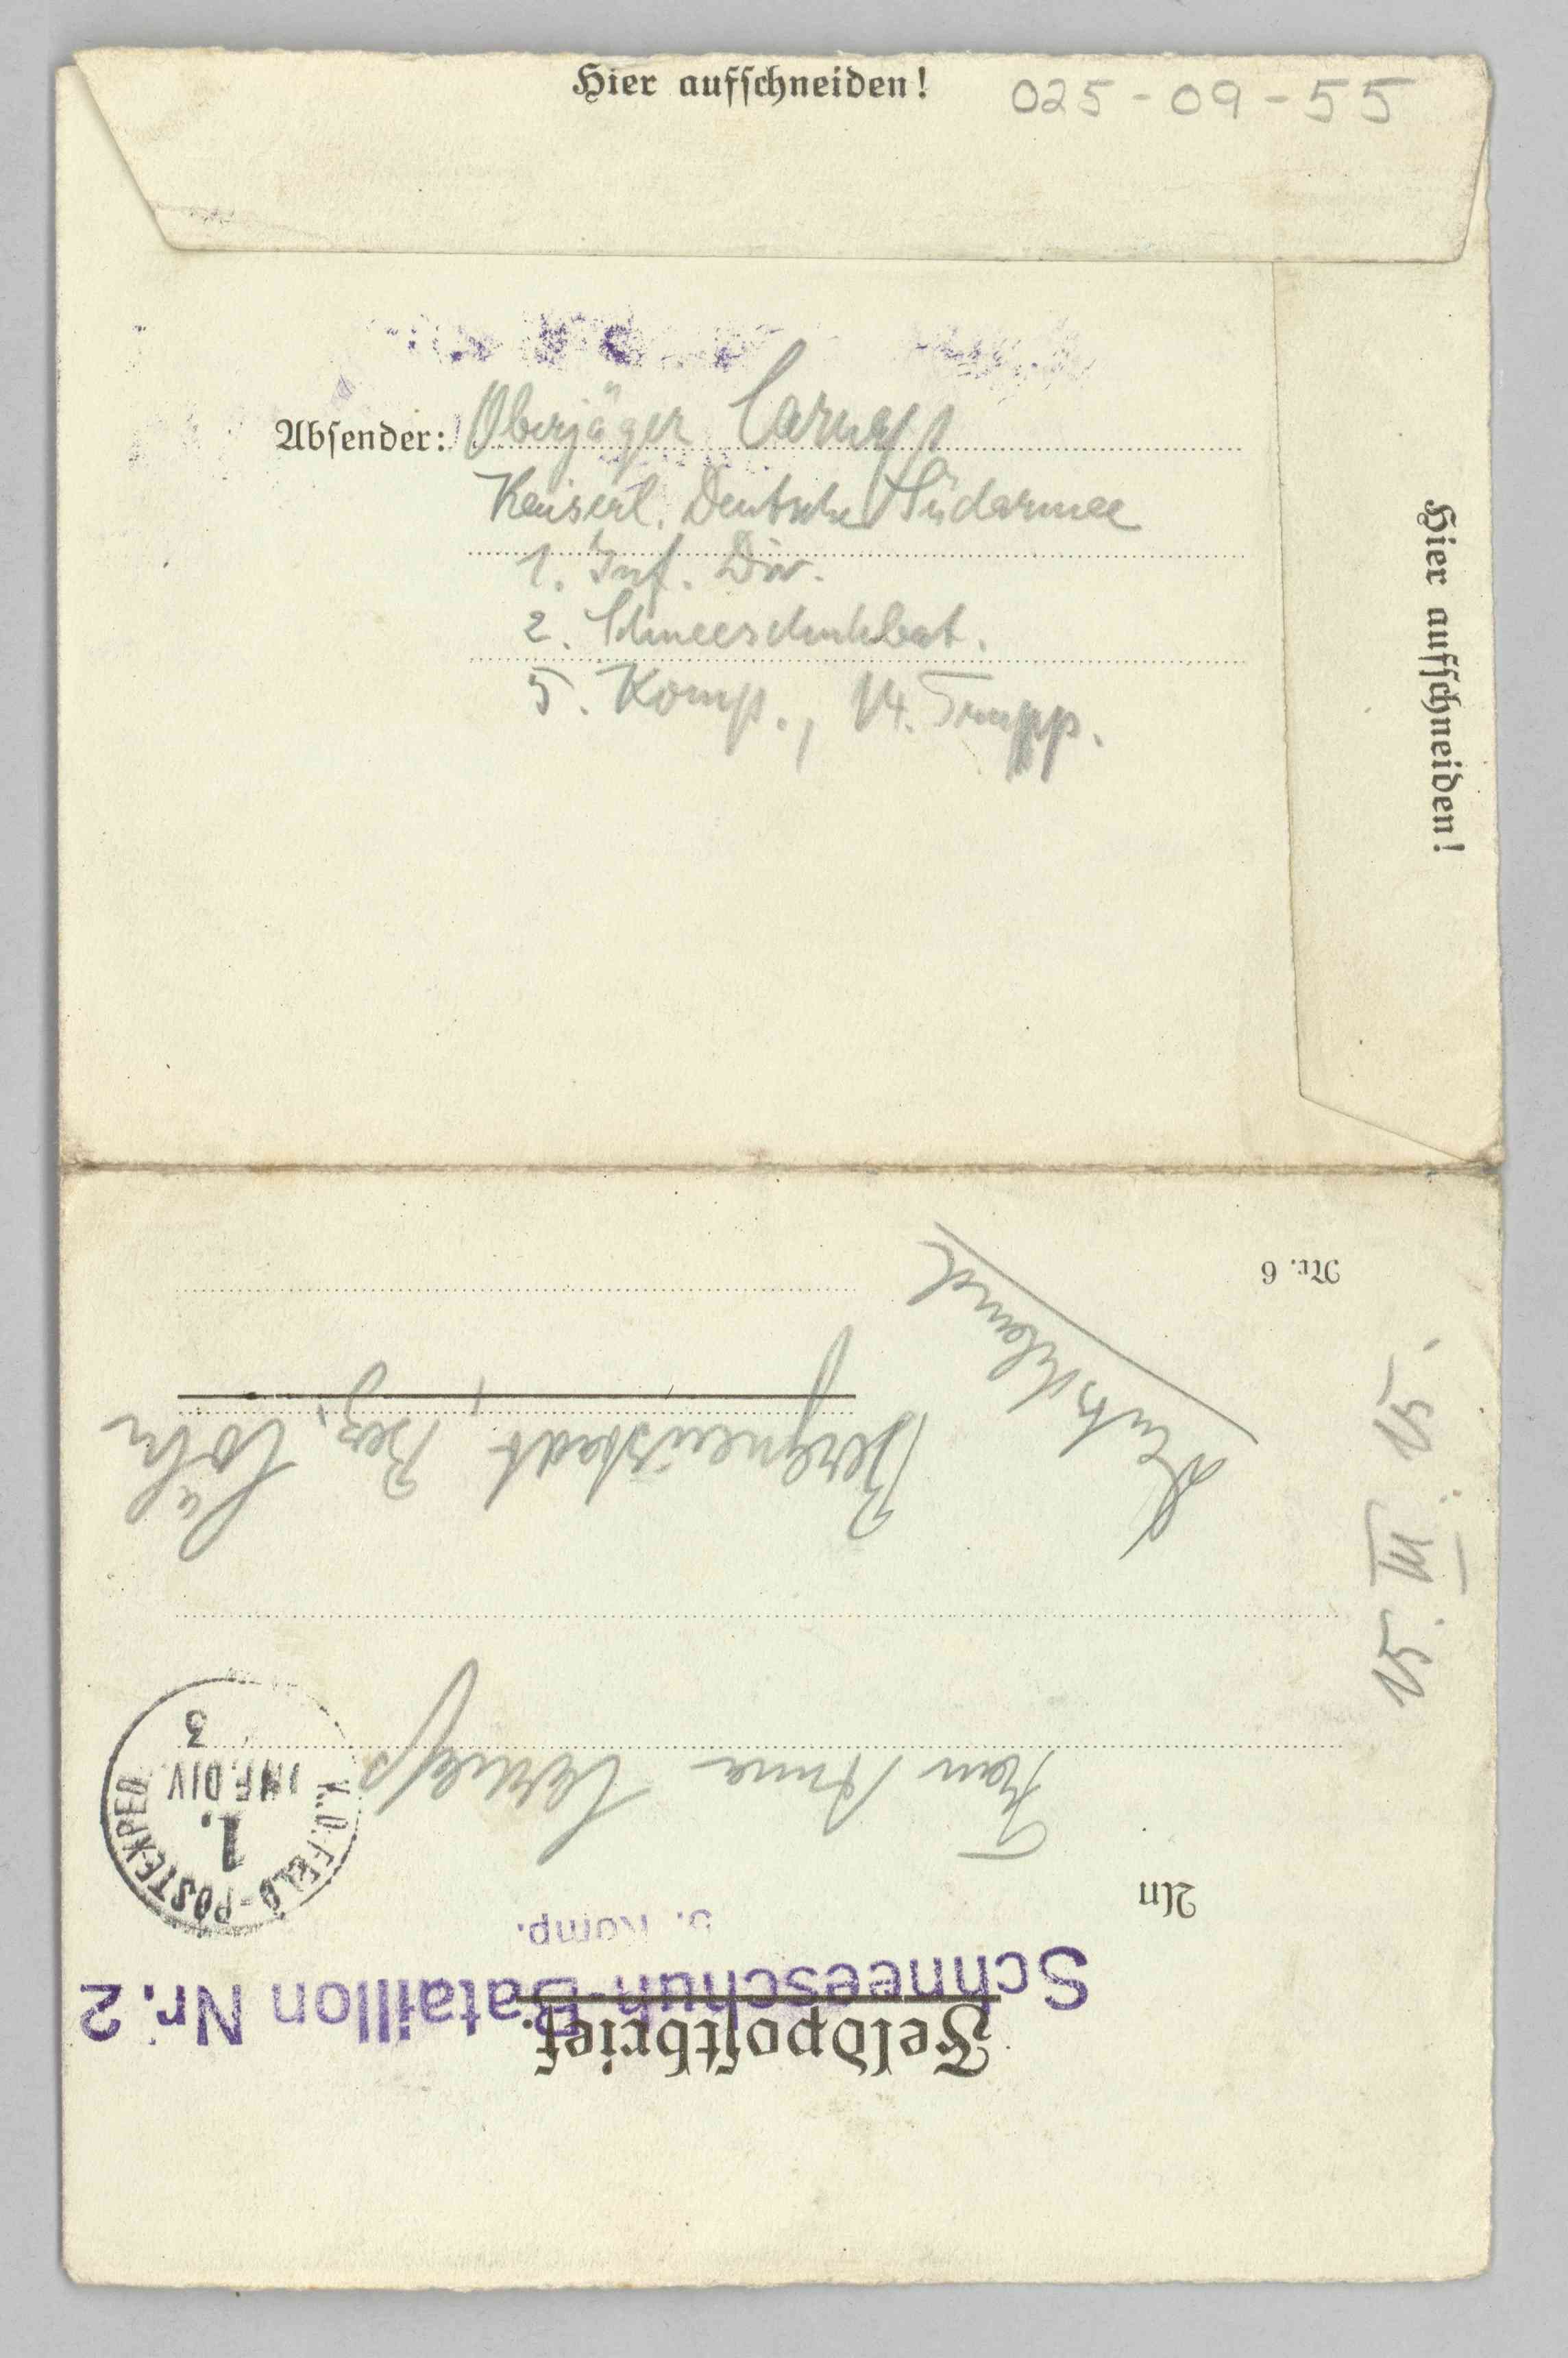 Hier aufschneiden!
025-09-55
Absender: Oberjäger Carnap
Kaiserl. Deutsche Südarmee
1. Inf. Div.
2. Schneeschuhbat.
5. Komp., 14. Trupp.
Hier aufschneiden!
Feldpostbrief.
Schneeschuh-Bataillon Nr. 2
5. Komp.
K.D. FELD-POSTEXPED.
1.
INF. DIV.
3
An
Frau Anna Carnap
Bergneustadt, Bez. Cöln
Deutschland
Nr. 6
15. III. 15.